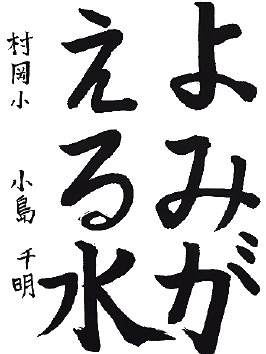 よみが
える水
村岡小 小島千明